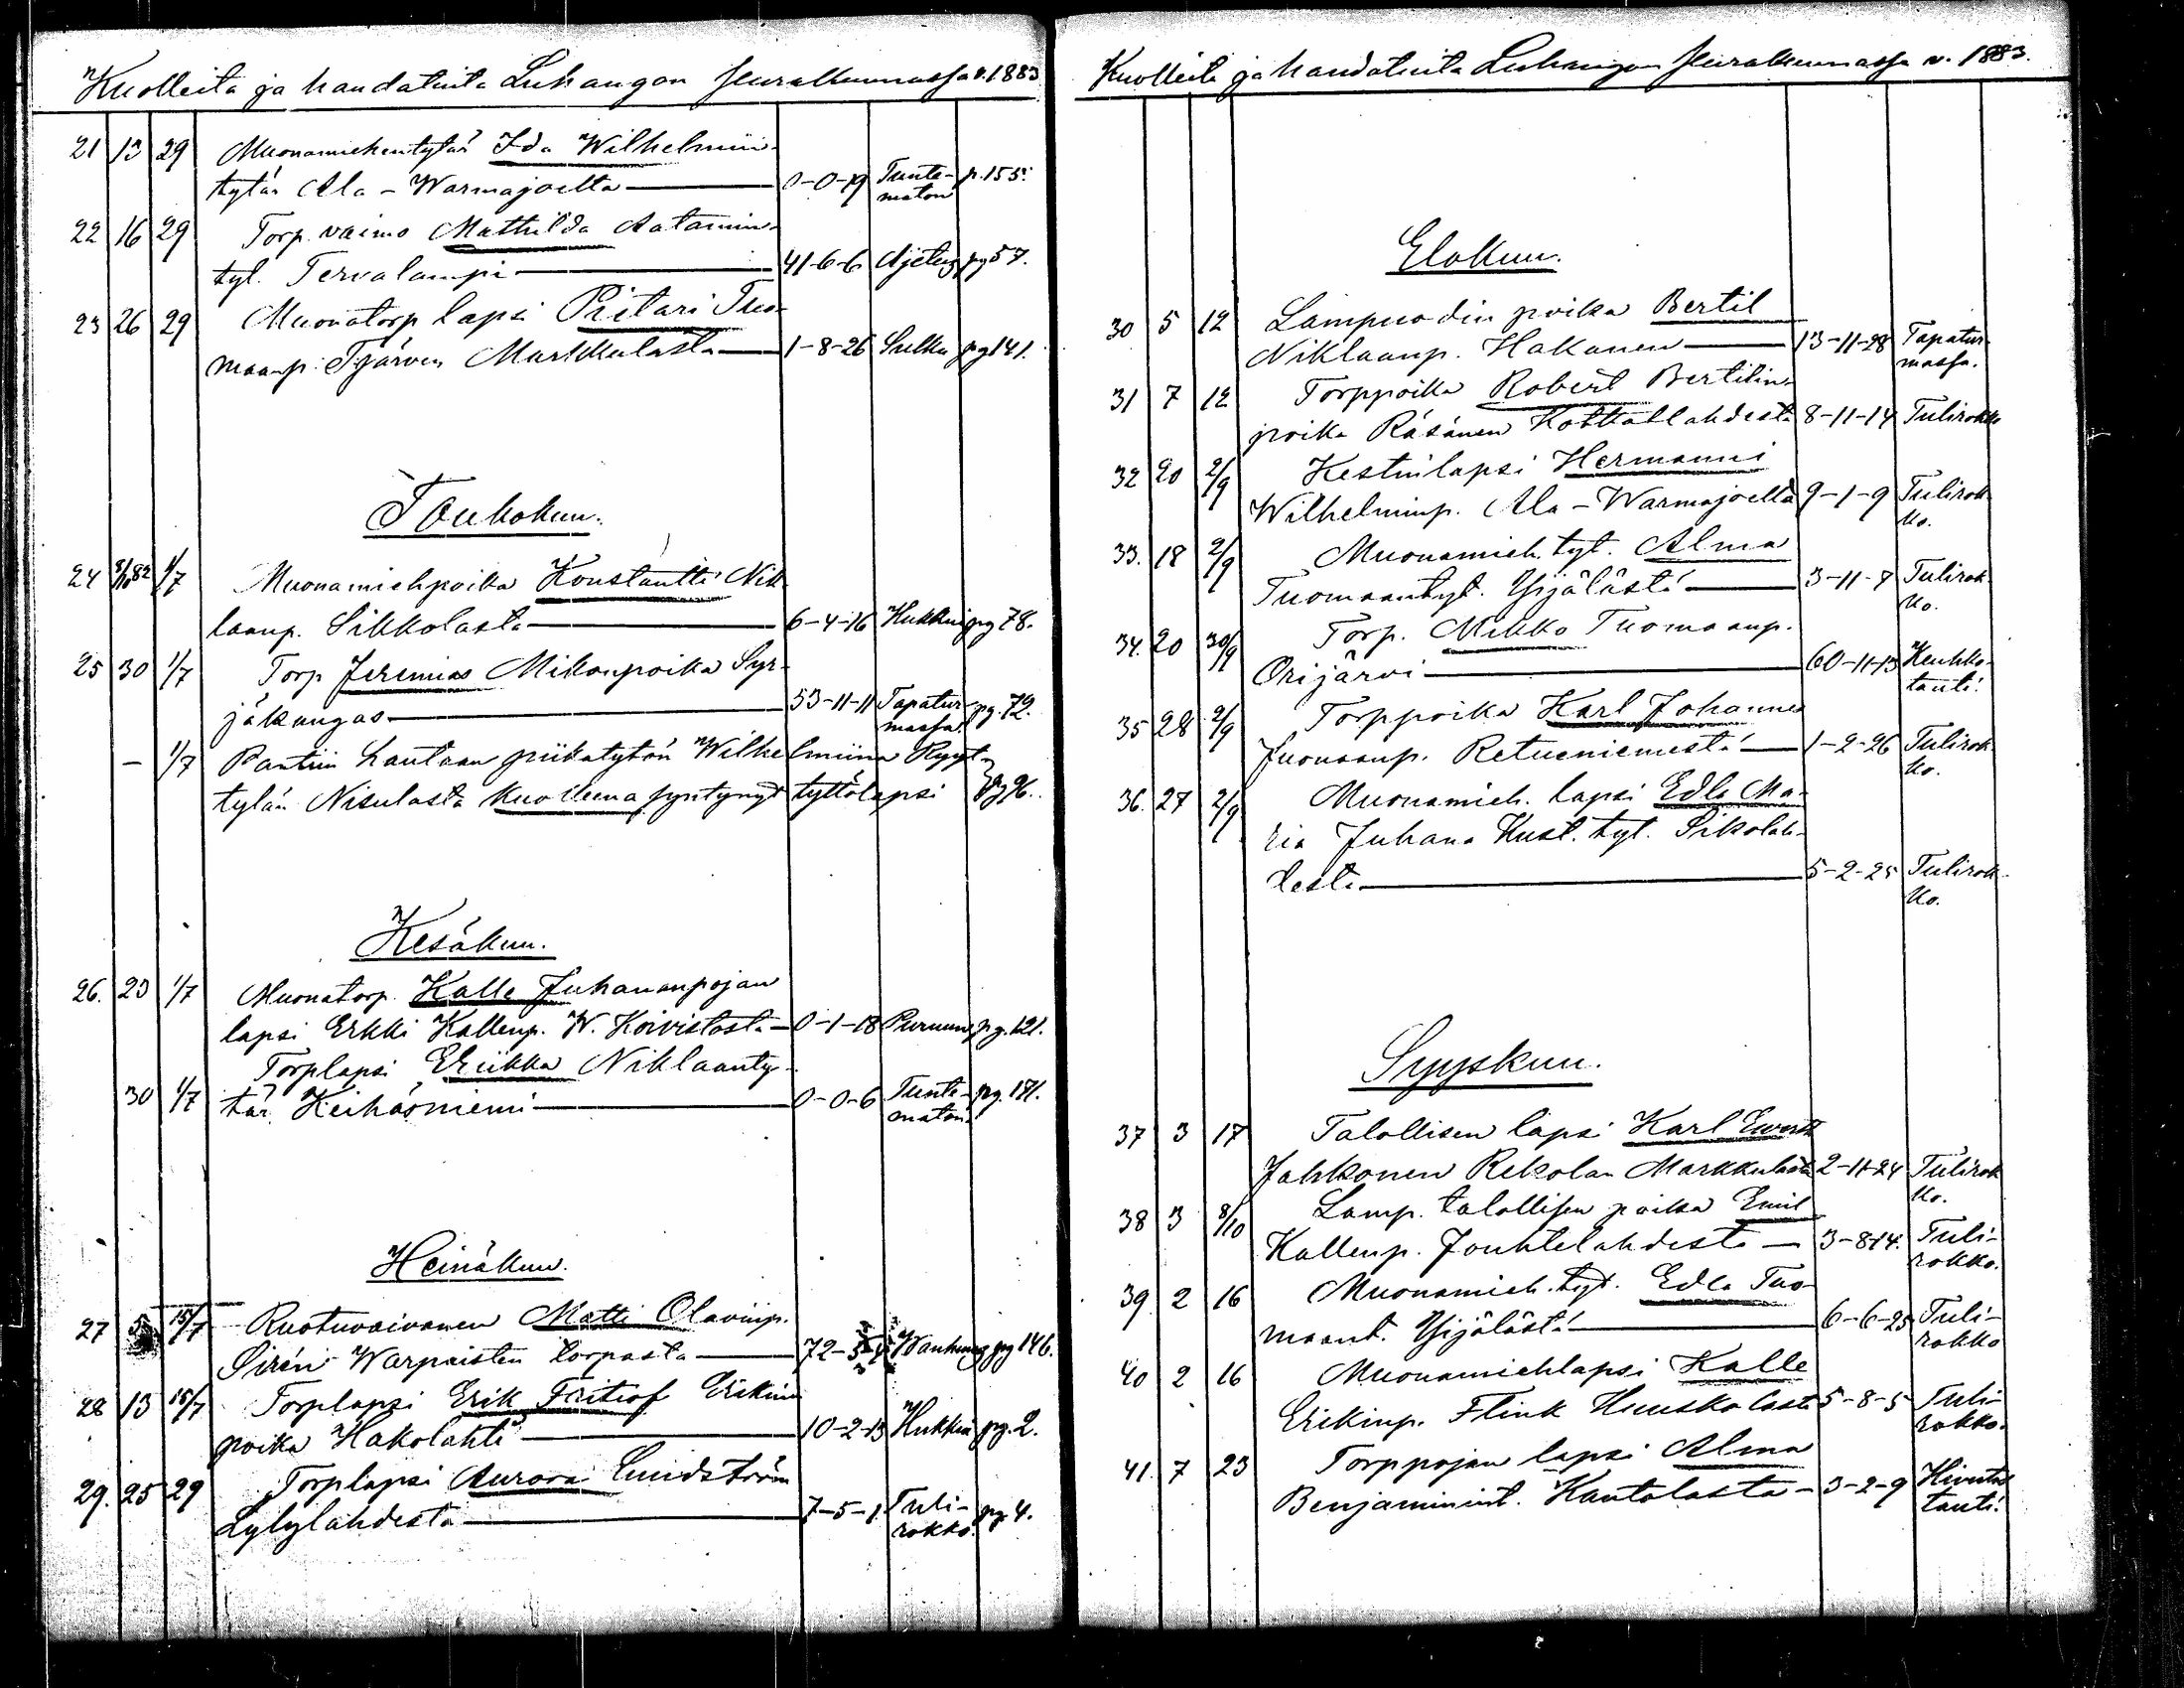 Kuolleita ja haudatuita Luhangan seurakunnassa v. 1883
21 13 29 Muonamiehentytär Ida Wilhelmiin-
tytär Ala-Warmajoelta — 0-0-19 Tunte- p. 155.
maton
22 16 29 Torp. vaimo Mathilda Aatamin-
tyt. Tervalampi — 41-6-6 Ajetus pg 57.
23 26 29 Muonatorp lapsi Pietari Tuo-
maanp. Markkulasta — 1-8-26 Sulku pg 141.
Toukokuu.
24 1/7 Muonamiehpoika Konstantti Nik-
laanp. Sikkolasta — 6-4-16 Hukkui pg 78.
25 30 1/7 Torp Jeremias Mikonpoika Syr-
jäkangas — 53-11-11 Tapatur- pg. 72.
massa.
— 1/7 Pantiin hautaan piikatytön Wilhelmiina
tytär Nisulasta kuolleena syntynyt tyttölapsi pg 96.
Kesäkuu.
26. 23 1/7 Muonatorp. Kalle Juhananpojan
lapsi Erkki Kallenp. W. Koivistosta — 0-1-18 pg. 121.
Torplapsi Eriikka Niklaanty-
30 1/7 tär Keihäsniemi — 0-0-6 Tunte- pg. 171.
maton.
Heinäkuu.
27 5 15/7 Ruotuvaivanen Matti Olavinp.
Sirén Warpaisten torpasta — 72- Wanhuus pg 146.
28 13 15/7 Torplapsi Erik Fritiof Erikin
poika Hakolahti — 10-2-13 Hukkui pg. 2.
29. 25 29 Torplapsi Aurora Lindström
Lylylahdesta — 7-5-1 Tuli- pg 4.
rokko.
Kuolleita ja haudatuita Luhangan seurakunnassa v. 1883.
Elokuu.
30 5 12 Lampuodin poika Bertil
Niklaanp. Hakanen — 13-11-28 Tapatur-
massa.
31 7 12 Torppoika Robert Bertilin-
poika Räsänen Kottatlahdesta 8-11-14 Tulirokko
32 20 2/9 Kestinlapsi Hermanni
Wilhelminp. Ala-Warmajoelta 9-1-9 Tulirok-
ko.
33. 18 2/9 Muonamieh. tyt. Alma
Tuomaantyt. Ylijälästä — 3-11-7 Tulirok-
ko.
34. 20 30/9 Torp. Mikko Tuomaanp.
Orijärvi — 60-11-13 Keuhko-
tauti.
35 28 2/9 Torppoika Karl Johannes
Juonaanp. Retueniemestä — 1-2-26 Tulirok-
ko.
36. 27 2/9 Muonamieh. lapsi Edla Ma-
ria Juhana Kust. tyt. Sikolah-
desta — 5-2-25 Tulirok-
ko.
Syyskuu.
37 3 17 Talollisen lapsi Karl Ewert
Jahkonen Rekolan Markkulasta 2-11-24 Tulirok
ko.
38 3 8/10 Lamp. talollisen poika Emil
Kallenp. Jouhtelahdesta — 3-8-14. Tuli-
rokko.
39. 2 16 Muonamieh. tyt. Edla Tuo-
maant. Ylijälästä — 6-6-25 Tuli-
rokko
40 2 16 Muonamiehlapsi Kalle
Erikinp. Flink Huuskolasta 5-8-5 Tuli-
rokko.
41. 7 23 Torppojan lapsi Alma
Benjaminint. Kautolasta — 3-2-9 Hivutus
tauti.